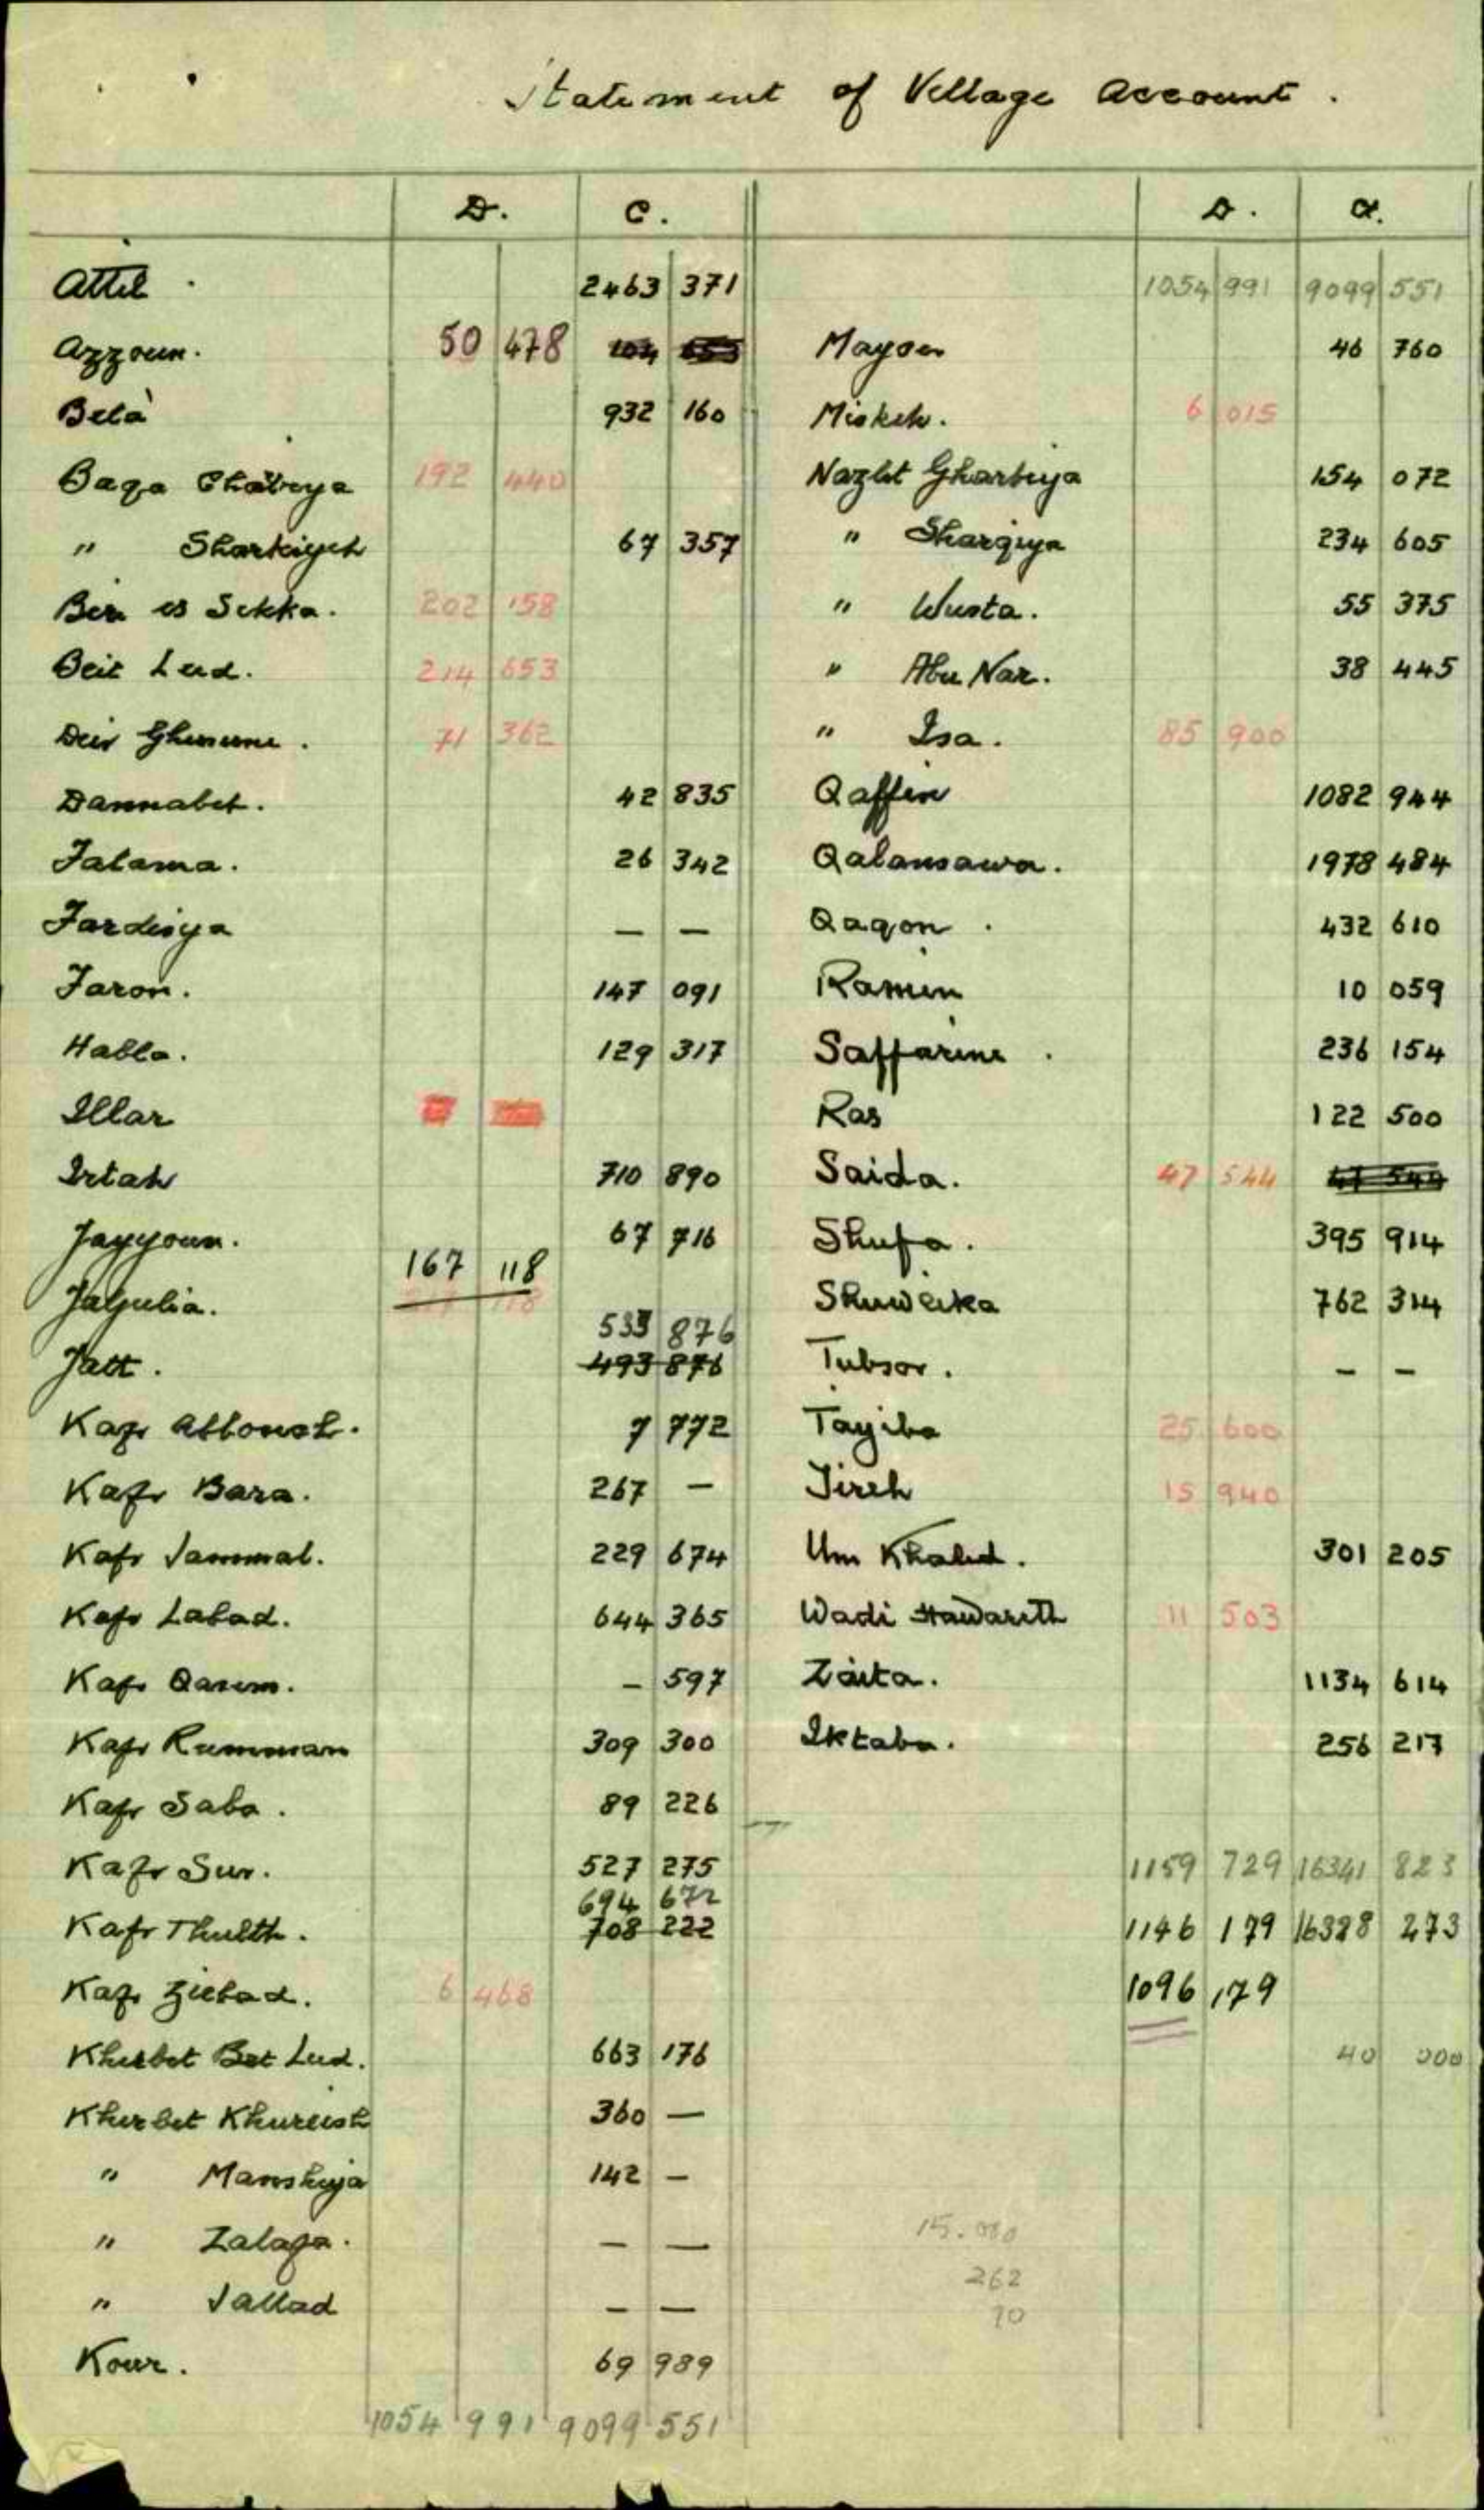 Statement of Village Account.
D. C. D. C.
Attil 2463 371
Azzoun. 50 478
Bela' 932 160
Baqa Gharbiya 192 440
" Sharkiyeh 67 357
Bir es Sikka. 202 158
Beit Lid. 214 653
Deir Ghusune. 71 362
Dannabet. 42 835
Falama. 26 342
Fardisya — —
Faron. 147 091
Habla. 129 317
Illar
Irtah 710 890
Jayyoun. 67 716
Jaljulia. 167 118
533 876
Jatt. 493 876
Kafr Abboush. 7 772
Kafr Bara. 267 —
Kafr Jammal. 229 674
Kafr Labad. 644 365
Kafr Qasem. — 597
Kafr Rumman 309 300
Kafr Saba. 89 226
Kafr Sur. 527 275
694 672
Kafr Thulth. 708 222
Kafr Zibad. 6 468
Khirbet Bet Lid. 663 176
Khirbet Khureish 360 —
" Manshiya 142 —
" Zalafa. — —
" Jallad — —
Kour. 69 989
1054 991 9099 551
1054 991 9099 551
Maysar 46 760
Miskeh. 6 015
Nazlet Gharbiya 154 072
" Sharqiya 234 605
" Wusta. 55 375
" Abu Nar. 38 445
" Isa. 85 900
Qaffin 1082 944
Qalansawa. 1978 484
Qaqon. 432 610
Ramin 10 059
Saffarine. 236 154
Ras 122 500
Saida. 47 544 47 544
Shufa. 395 914
Shuweika 762 314
Tubsor. — —
Tayiba 25 600
Tireh 15 940
Um Khalid. 301 205
Wadi Hawarith 11 503
Zaita. 1134 614
Iktaba. 256 217
1159 729 16341 823
1146 179 16328 273
1096 179
40 000
15.000
262
70